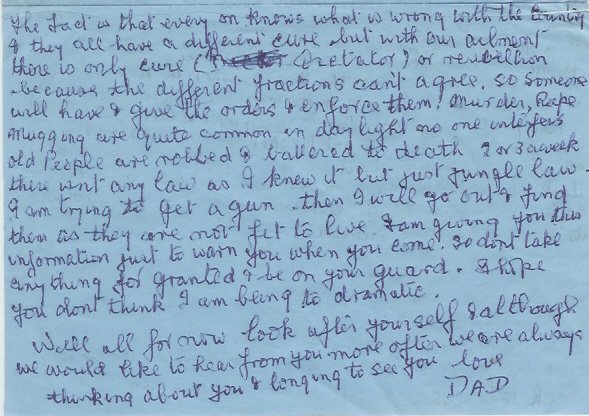 The fact is that every on knows what is wrong with the Country
& they all have a different cure but with our ailment
there is only cure ( Dictator) or rebellion
because the different fractions cant agree. So someone
will have to give the orders & enforce them. Murder, Rape
mugging are quite common in daylight no one interfers
old People are robbed & battered to death 2 or 3 a week
there isnt any law as I knew it but just jungle law.
I am trying to get a gun. then I will go out & find
them as they are not fit to live. I am giving you this
information just to warn you when you come. So dont take
anything for granted & be on your guard. I hope
you dont think I am being to dramatic.
Well all for now look after yourself & although
we would like to hear from you more often we are always
thinking about you & longing to see you love
DAD